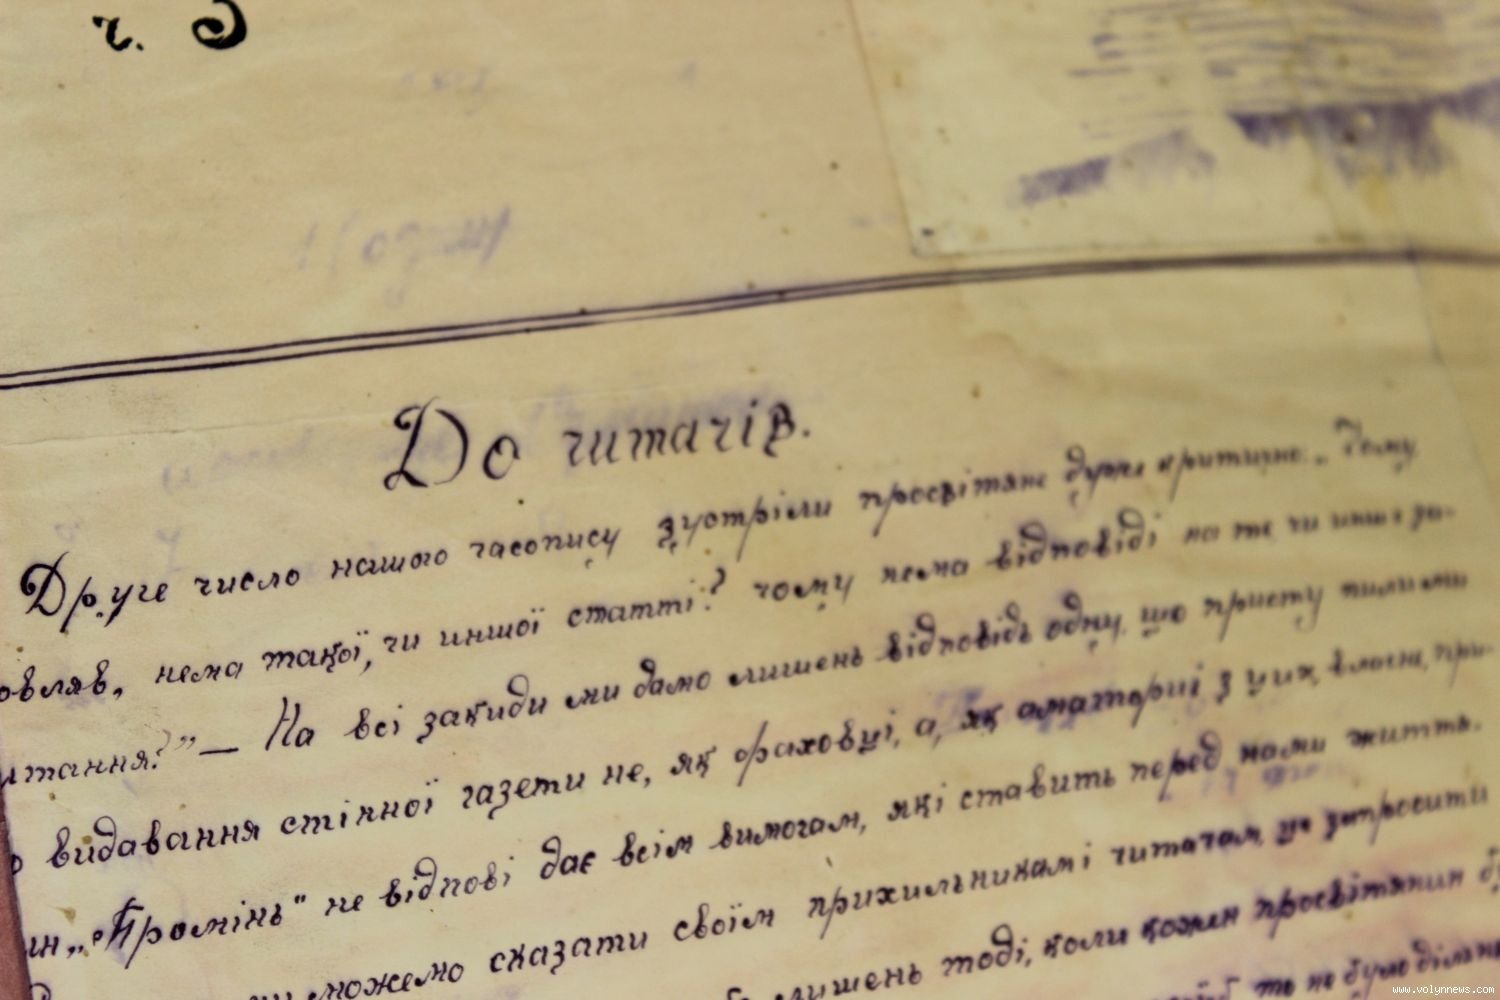 ч. 3
До читачів.
Друге число нашого часопису зустріли просвітяне дуже критично: „Чому
нема такої, чи иншої статті? чому нема відповіді на те чи инше за-
На всі закиди ми дамо лишень відповідь одну, що
видавання стінної газети не, як фаховці, а, як аматорії з цих, власне, при-
„Промінь" не відпові дає всім вимогам, які ставить перед нами життя.
можемо сказати своїм прихильникам і читачам, це запросити
лишень тоді, коли кожен просвітянин
то не було дільни
www.volynnews.com